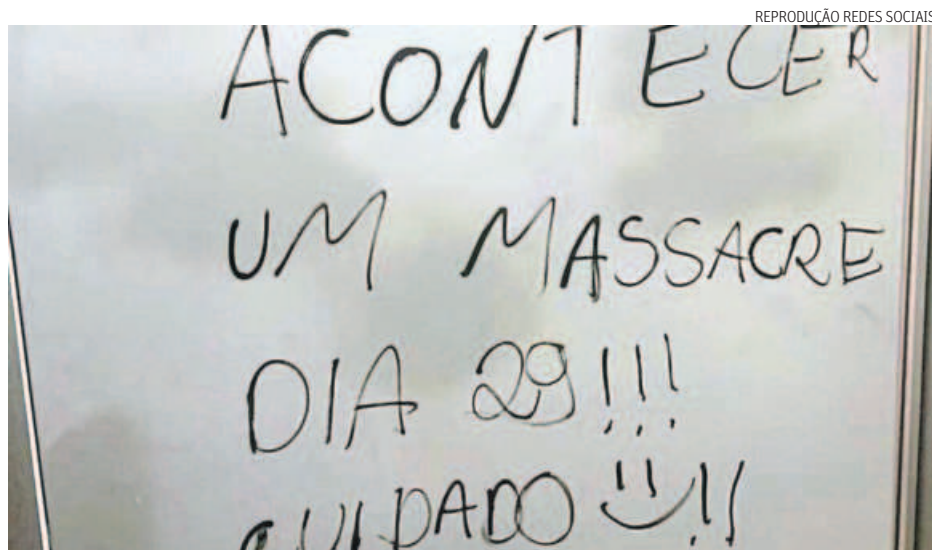 REPRODUÇÃO REDES SOCIAIS
ACONTECER
UM MASSACRE
DIA 29!!!
CUIDADO !!